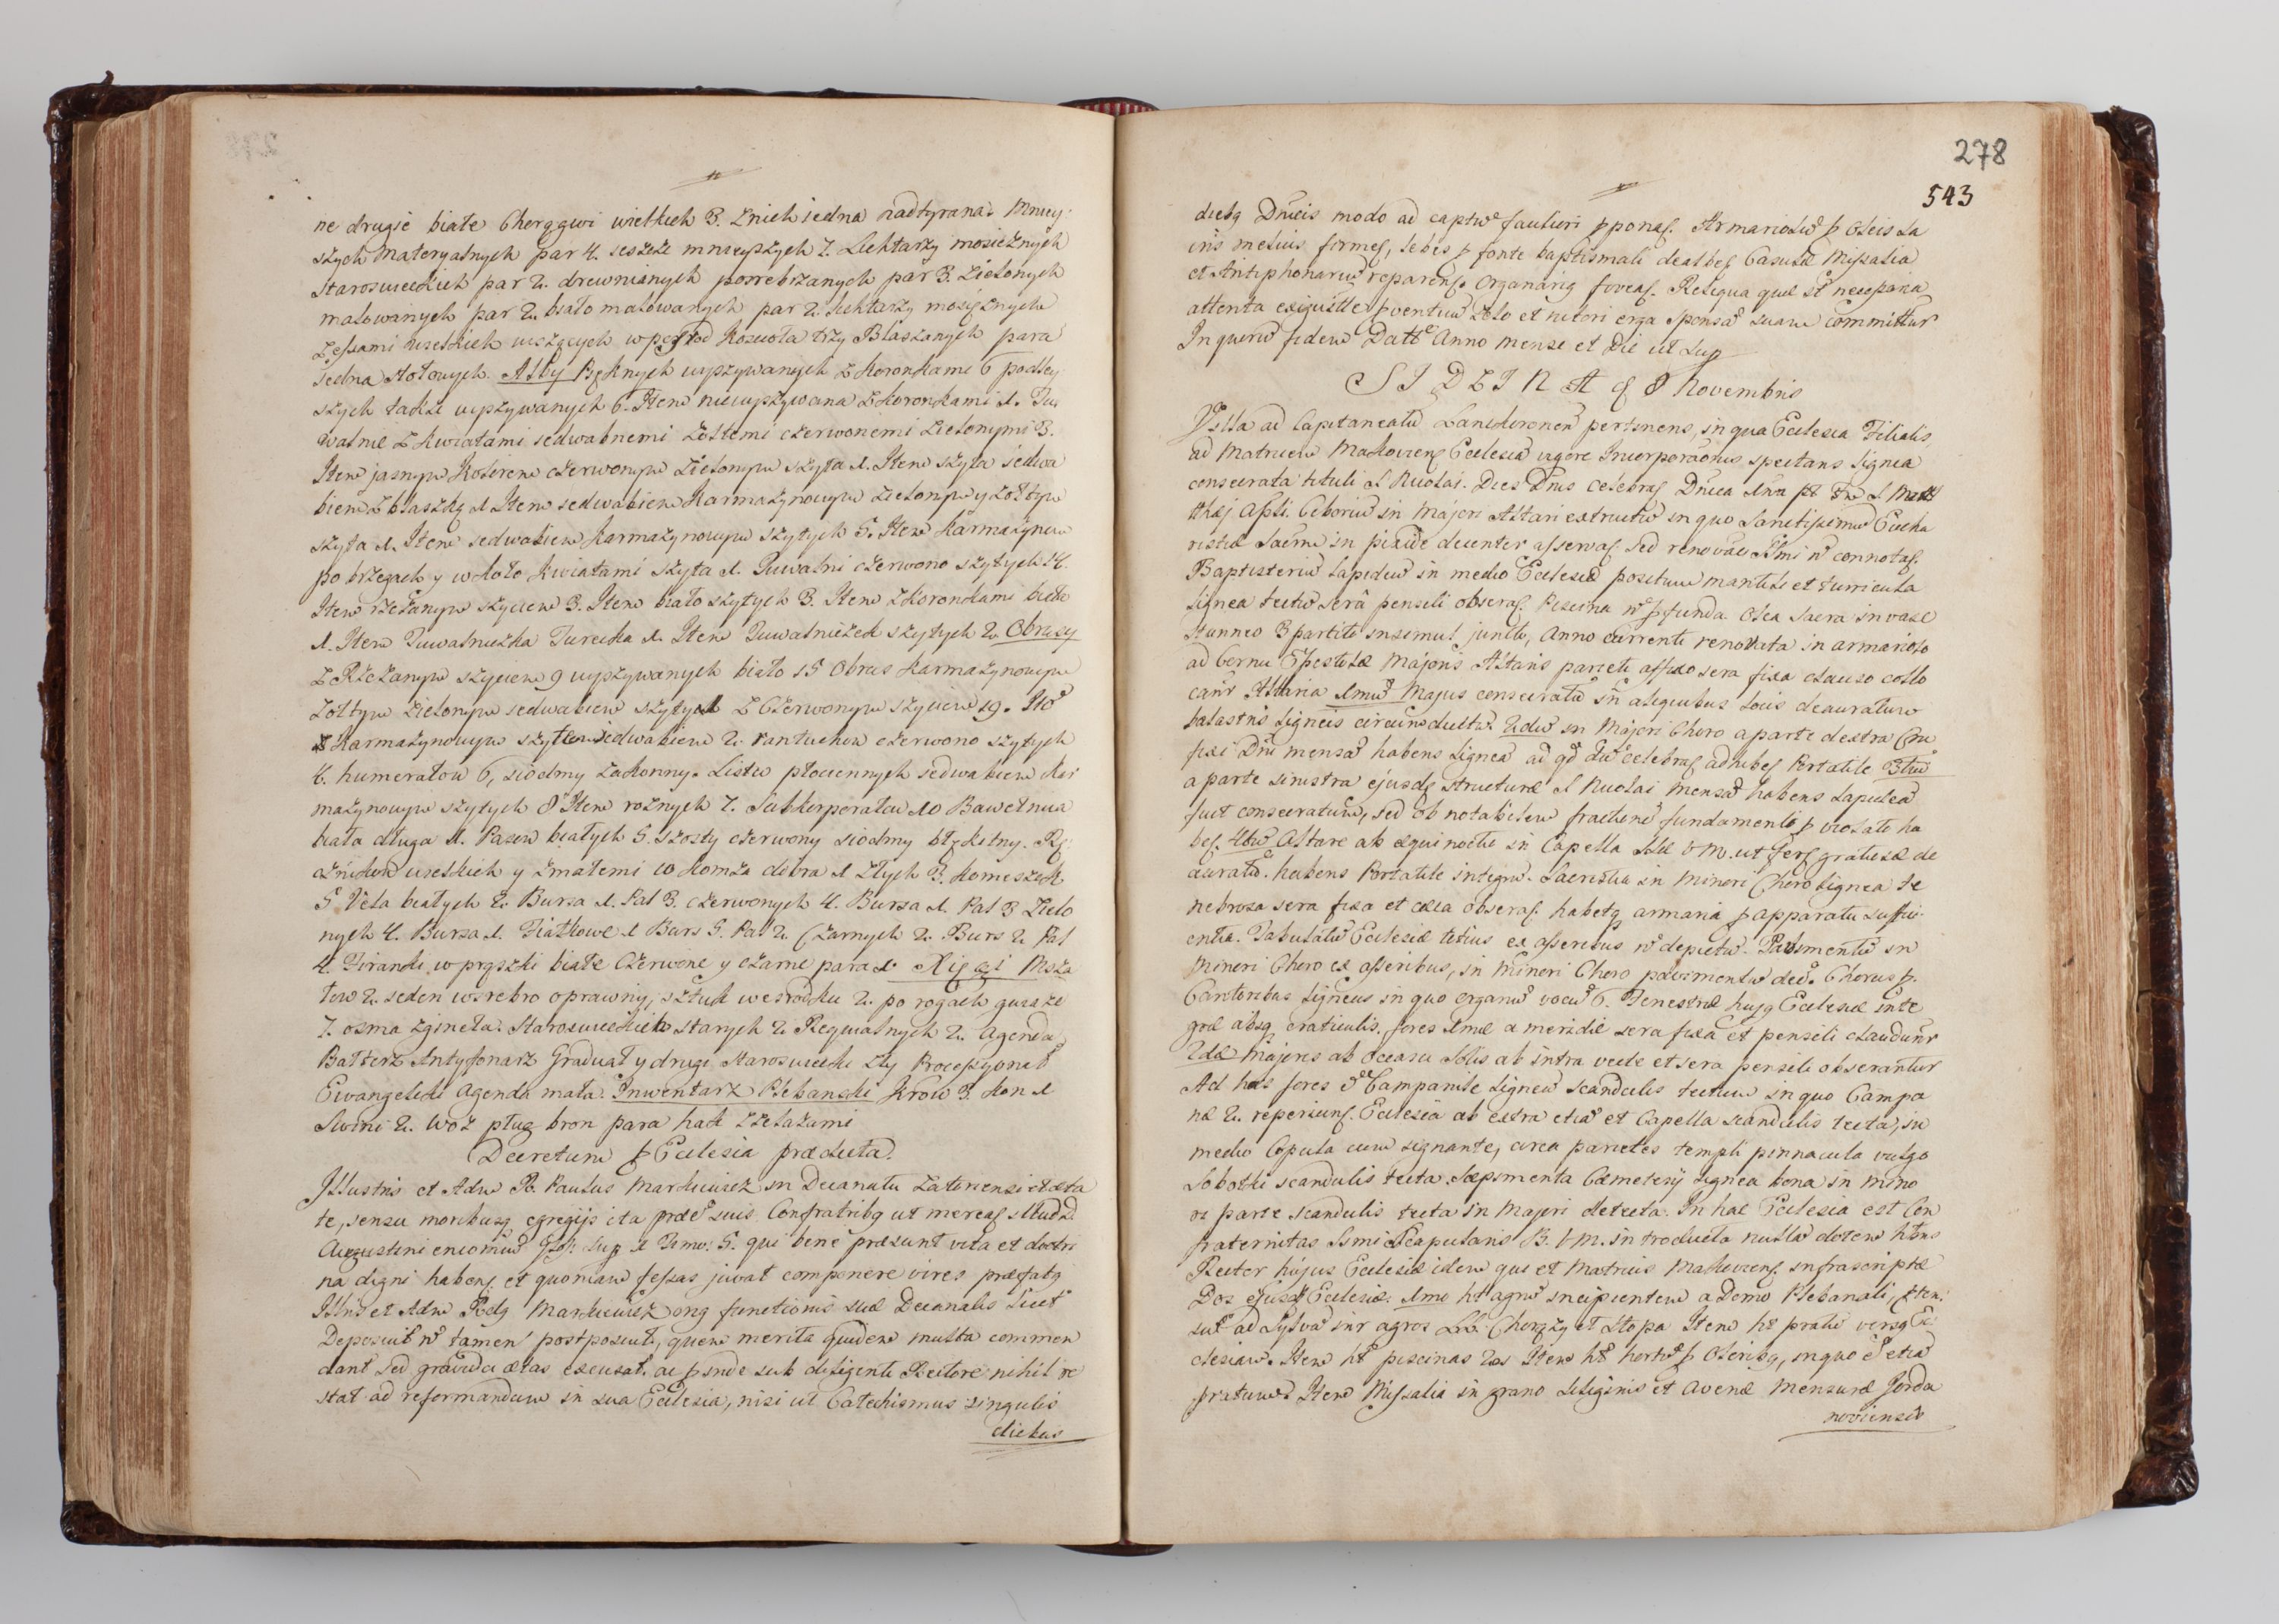 ne drugie białe Chorągwi wielkich 3. z nich jedna nadtyrana Mniey
szych Materyalnych par 4. jeszcze mnieyszych 7. Lichtarzy mosiężnych
staroswieckich par 2. drewnianych posrebrzanych par 3. zielonych
malowanych par 2. biało malowanych par 2. lichtarzy mosiężnych
wielkich wiszących w Koscioła trzy Blaszanych para
jedna stołowych. Alby Pięknych wyszywanych z koronkami 6 podley
szych także wyszywanych 6. Item niewyszywana z koronkami 1. Tu
walnie z kwiatami jedwabnemi żołtemi czerwonemi zielonymi 3.
Item jasnym kolorem czerwonym zielonym szyta 1. Item szyta jedwa
biem z blaszką 1 Item jedwabiem karmazynowym zielonym y żołtym
szyta 1. Item jedwabiem karmazynowym szytych 5. Item karmazynem
po brzegach y wkoło kwiatami szyta 1. Tuwalni czerwono szytych 14.
Item rżezanym szyciem 3. Item biało szytych 3. Item z koronkami białe
1. Item Tuwalniczka Turecka 1. Item Tuwalniczek szytych 2. Obrusy
z Rżeżanym szyciem 9 wyszywanych biało 15 Obrus karmazynowym
żołtym zielonym jedwabiem szytych z Czerwonym szyciem 19.
karmazynowym szytem jedwabiem 2. rantuchow czerwono szytych
4. humerałow 6, siodmy zakonny. Listw płociennych jedwabiem kar
mazynowym szytych 8 Item rożnych 7. Subkorporałow 10 Bawełnica
biała długa 1. Pasow białych 5. szosty czerwony siodmy błękitny. Rę
cznikow wielkich y z małemi 10 Komża dobra 1 złych 3. Komeszek
5 Vela białych 2. Bursa 1. Pal 3. czerwonych 4. Bursa 1. Pal 3 Zielo
nych 4. Bursa 1. Fiałkowe 1 Burs 5. Pal 2. Czarnych 2. Burs 2. Pal
4. Firanki w prążki białe Czerwone y czarne para 1. Xięgi Msza
łow 2. jeden w srebro oprawny, sztuk wesrodku 2. po rogach guzżze
7. osma zgineła. Staroswieckich starych 2. Reqwialnych 2. Agenda
Psałterz Antyfonarz Graduał y drugi staroswiecki zły Processyonał
Ewangeliczki Agenda mała. Inwentarz Plebanski Krow 3. Kon 1
Swini 2. Woz pług bron para hak z żelazami
Decretum p Ecclesia praedicta.
Illustris et Adm R. Paulus Markiewicz in Decanatu Zatoriensi et aeta
te, sensu moribusq egregijs ita praeest suis Confratribq ut mereat illud D.
Augustini encomium 1 Timo: 5. qui bene praesunt vita et doctri
na digni habent et quoniam fessas juvat componere vires praefatq
Illris et Adm Rdq Markiewicz onq functionis suae Decanalis licet
Deposuit n tamen postposuit, quem merita quidem multa commen
dant sed gravida aetas excusat. ac pinde sub diligenti Rectore nihil re
stat ad reformandum in sua Ecclesia, nisi ut Catechismus singulis
diebus
278
543
diebq Dnicis modo ad captum faciliori pponat. Armariolum p Oleis Sa
cris melius firmet, lebes p fonte baptismali dealbet Casulae Missalia
et Antiphonarium reparent. Organariq foveat. Reliqua quae st necessaria
attenta exiguitte pventuum zelo et nitori erga Sponsam suam Committur
In quorum fidem Datt Anno mense et Die ut Sup
SIDZINA 8 Novembris
Villa ad Capitaneatum Lanckoronen pertinens, in qua Ecclesia Filialis,
ad Matricem Makoviens Ecclesiam vigore Incorporaonis spectans lignea
consecrata tituli S Nicolai. Dies Dnis celebrat Dnica Ima pt S Mat
thaei Apli. Ciborium in Majori Altari extructum in quo Sanctissimum Eucha
ristiae Sacrm in pixide decenter asservat. sed renovao Ssmi n connotat.
Baptisterium lapideum in medio Ecclesiae positum mantili et turricula
lignea tectum sera pensili obserat. Piscina n pfunda. Olea Sacra in vase
stanneo 3partito insimul juncto, Anno currenti renovata in armariolo
ad Cornu Epistolae Majoris Altaris parieti affixo sera fixa clauso collo
canr Altaria Imum Majus consecratum in aliquibus locis deauratum
balastris ligneis circumductum. 2dum in Majori Choro a parte dextra Cru
fixi Dni mensam habens ligneam ad qd dum celebrat adhibet Portatile 3tium
a parte sinistra ejusdq structurae S Nicolai Mensam habens lapideam
fuit consecratum, sed ob notabilem fractionem fundamenti p violato ha
bet. 4tum Altare ab aequinoctio in Capella B V M. ut fert gratiosae de
auratum. habens Portatile integrum. Sacristia in minori Choro lignea te
nebrosa sera fixa et caeca obserat. habetq armaria p apparatu suffici
entia. Tabulatum Ecclesiae totius ex asseribus n depictum. Pavimentum in
Minori Choro ex asseribus, in Minori Choro pavimentum deest. Chorus p
Cantoribus ligneus in quo organum vocum 6. Fenestrae hujq Ecclesiae inte
grae absq craticulis. fores Imae a meridie sera fixa et pensili claudunr
2dae Majores ab Occasu Solis ab intra vecte et sera pensili obserantur
Ad has fores e Campanile ligneum scandulis tectum in quo Campa
nae 2. reperiunt. Ecclesia ab extra etiam et Capella scandulis tecta, in
medio Copula cum signante, circa parietes templi pinnacula vulgo
Sobotki scandulis tecta. Saepimenta Caemeterij lignea bona in mino
ri parte scandulis tecta in Majori detecta. In hac Ecclesia est Con
fraternitas Ssmi Scapularis B. V M. introducta nullam dotem hbns
Rector hujus Ecclesiae idem qui et Matricis Makoviens infrascriptae
Dos ejusdq Ecclesiae. Imo ht agrum incipientem a Domo Plebanali,
ad Sylvam inr agros LL. Chorąży et Stopa Item ht pratum versq Ec
clesiam. Item ht piscinas 2as Item ht hortum p Oleribq, in quo e etiam
pratum Item Missalia in grano Siliginis et Avenae Mensurae Jorda
noviensis